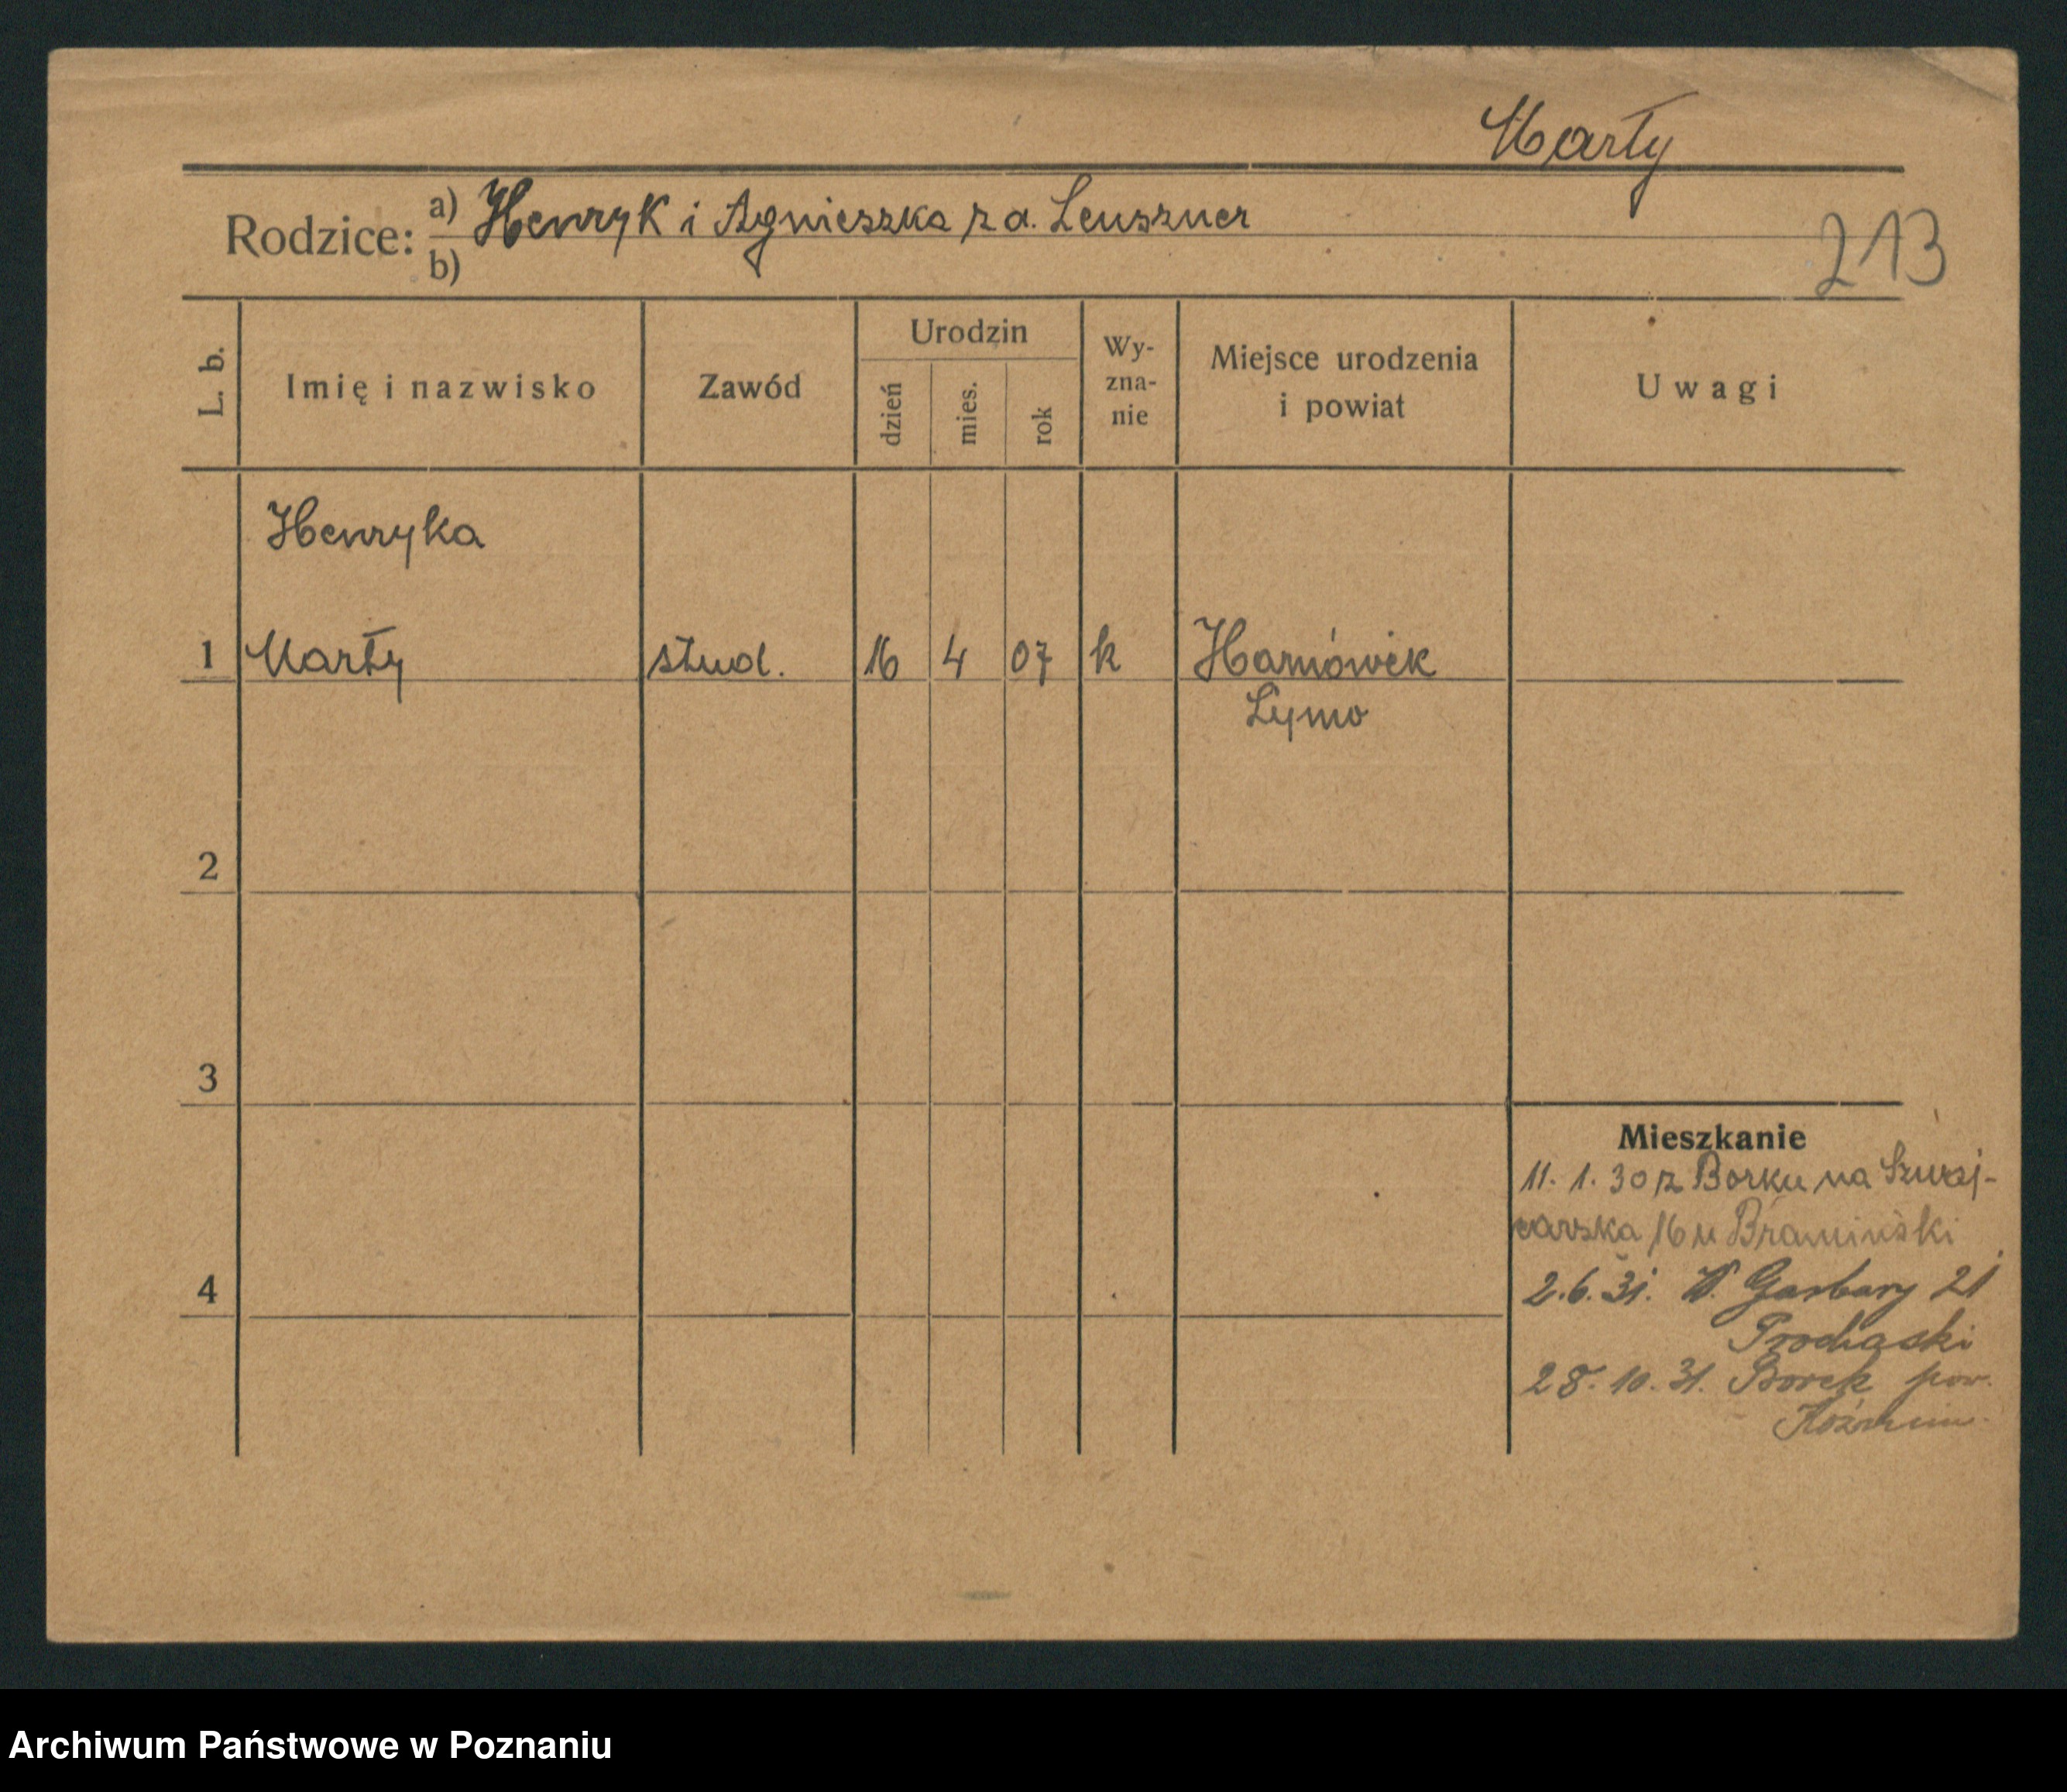 Marły
Rodzice: a) Henryk i Agnieszka z d. Leuszner
b)
213
L. b.
Imię i nazwisko
Zawód
Urodzin
dzień
mies.
rok
Wy-
zna-
nie
Miejsce urodzenia
i powiat
Uwagi
Henryka
1 Marły stud. 16 4 07 k Harnówek
2
3
4
Mieszkanie
11. 1. 30 z Borku na Szwaj-
carska 16 u
2.6.31. W. Garbary 21
Prochaski
28.10.31. Borek pow.
Koźmin.
Archiwum Państwowe w Poznaniu